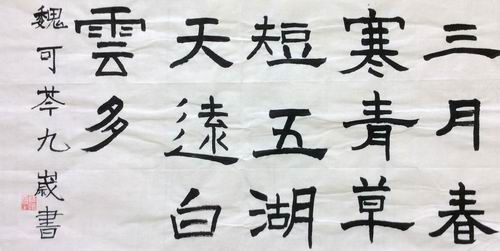 三月春
寒青草
短五湖
天遠白
雲多
魏可芩九歲書